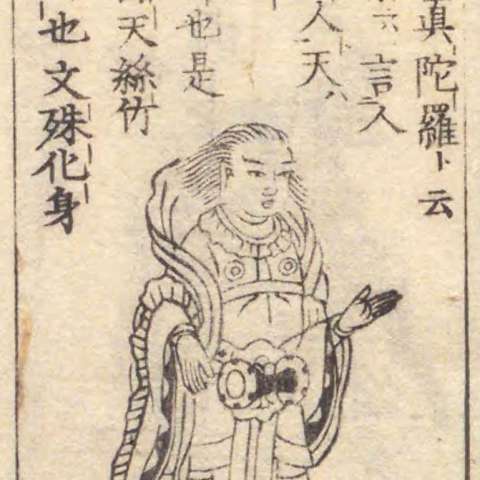 眞陀羅ト云
言人
人ト天ハ
也是
天絲竹
也文殊化身